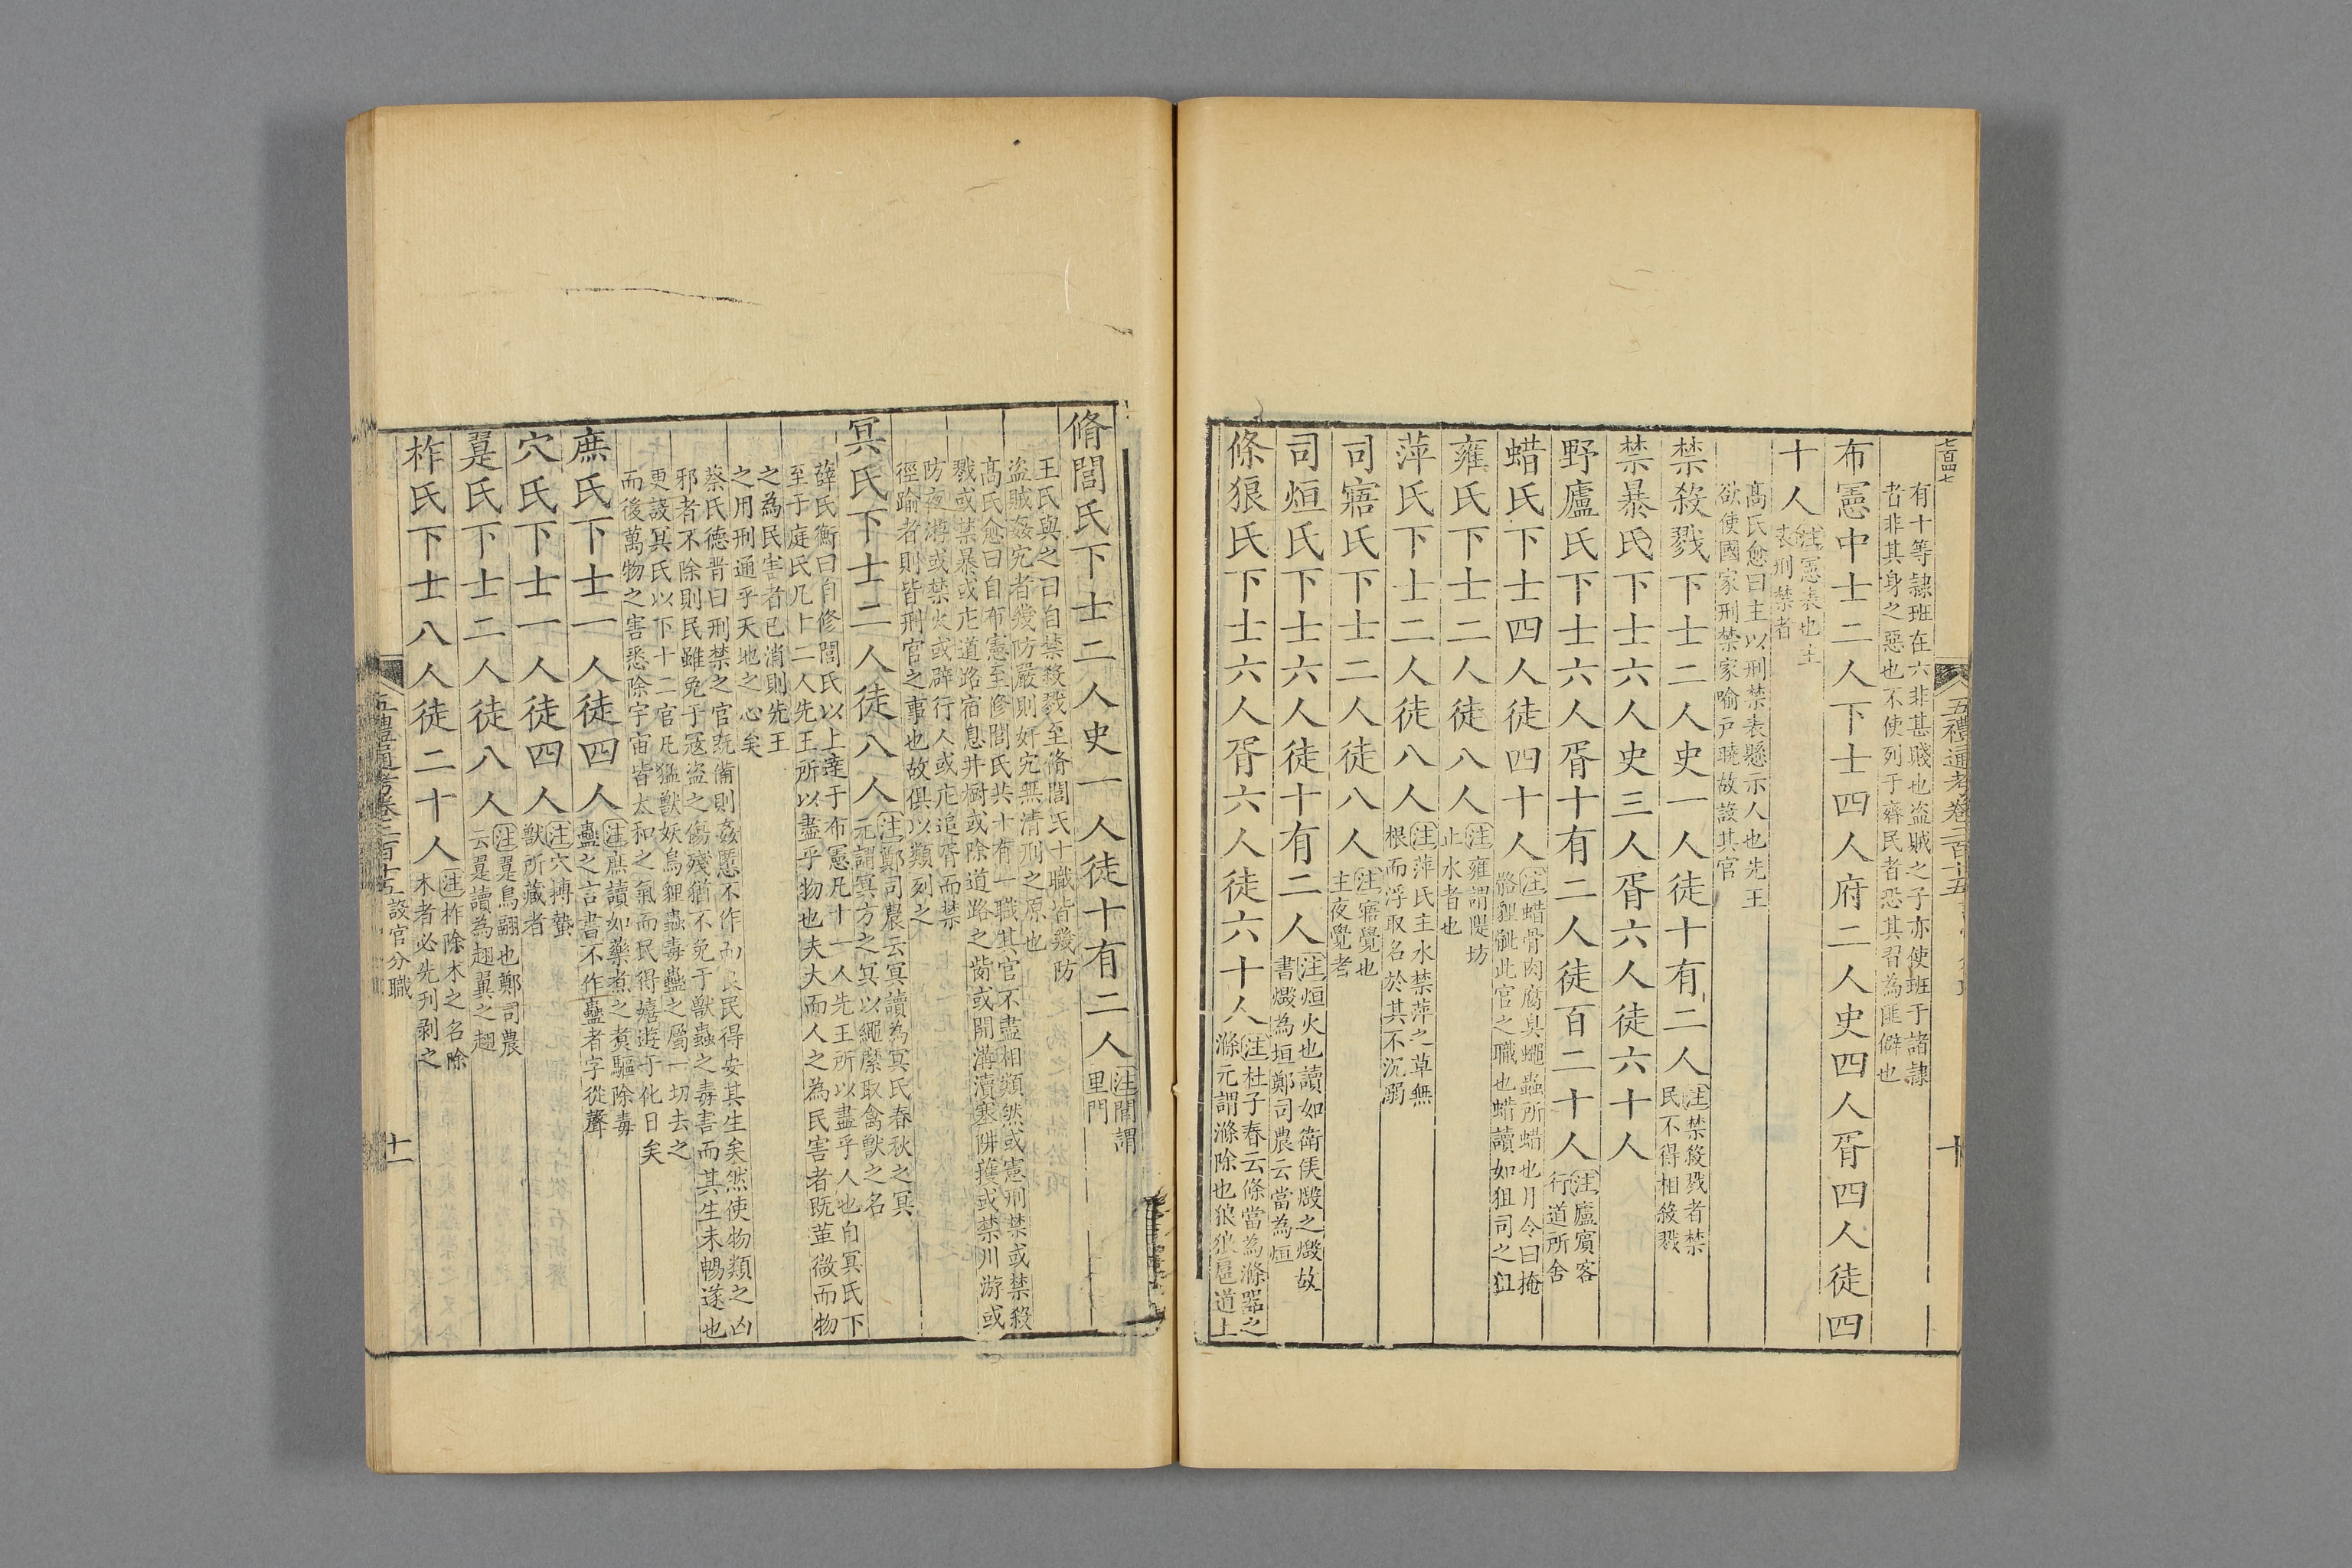 有十等隷班在六非甚賤也盗賊之子亦使班于諸隷
者非其身之惡也不使列于齊民者恐其習為匪僻也
布憲中士二人下士四人府二人史四人胥四人徒四
十人注憲表也主
表刑禁者
高氏愈曰主以刑禁表懸示人也先王
欲使國家刑禁家喻戸曉故設其官
禁殺戮下士二人史一人徒十有二人注禁殺戮者禁
民不得相殺戮
禁暴氏下士六人史三人胥六人徒六十人
野廬氏下士六人胥十有二人徒百二十人注廬賓客
行道所舍
蜡氏下士四人徒四十人注蜡骨肉腐臭蠅蟲所蜡也月令曰掩
骼貍骴此官之職也蜡讀如狙司之狙
雍氏下士二人徒八人注雍謂隄坊
止水者也
萍氏下士二人徒八人注萍氏主水禁萍之草無
根而浮取名於其不沉溺
司寤氏下士二人徒八人注寤覺也
主夜覺者
司烜氏下士六人徒十有二人注烜火也讀如衛侯燬之燬故
書燬為垣鄭司農云當為烜
條狼氏下士六人胥六人徒六十人注杜子春云條當為滌器之
滌元謂滌除也狼狼扈道上
五禮通考卷二百十五
十
脩閭氏下士二人史一人徒十有二人注閭謂
里門
王氏與之曰自禁殺戮至脩閭氏十職皆幾防
盗賊姦宄者幾防嚴則奸宄無清刑之原也
高氏愈曰自布憲至修閭氏共十有一職其官不盡相類然或憲刑禁或禁殺
戮或禁暴或庀道路宿息井樹或除道路之觜或開溝瀆塞阱擭或禁川游或
防夜遊或禁火或辟行人或庀追胥而禁
徑踰者則皆刑官之事也故俱以類列之
冥氏下士二人徒八人注鄭司農云冥讀為冥氏春秋之冥
元謂冥方之冥以繩縻取禽獸之名
薛氏衡曰自修閭氏以上達于布憲凡十一人先王所以盡乎人也自冥氏下
至于庭氏凡十二人先王所以盡乎物也夫大而人之為民害者既堇微而物
之為民害者已消則先王
之用刑通乎天地之心矣
蔡氏德晋曰刑禁之官既備則姦慝不作而良民得安其生矣然使物類之凶
邪者不除則民雖免于冦盗之傷殘猶不免于獸蟲之毒害而其生未暢遂也
更設冥氏以下十二官凡猛獸妖鳥貍蟲毒蠱之屬一切去之
而後萬物之害悉除宇宙皆太和之氣而民得嬉遊于化日矣
庶氏下士一人徒四人注庶讀如藥煮之煮驅除毒
蠱之言書不作蠱者字從聲
穴氏下士一人徒四人注穴搏蟄
獸所藏者
翨氏下士二人徒八人注翨鳥翮也鄭司農
云翨讀為翅翼之翅
柞氏下士八人徒二十人注柞除木之名除
木者必先刋剥之
五禮通考卷二百十五 設官分職
十一